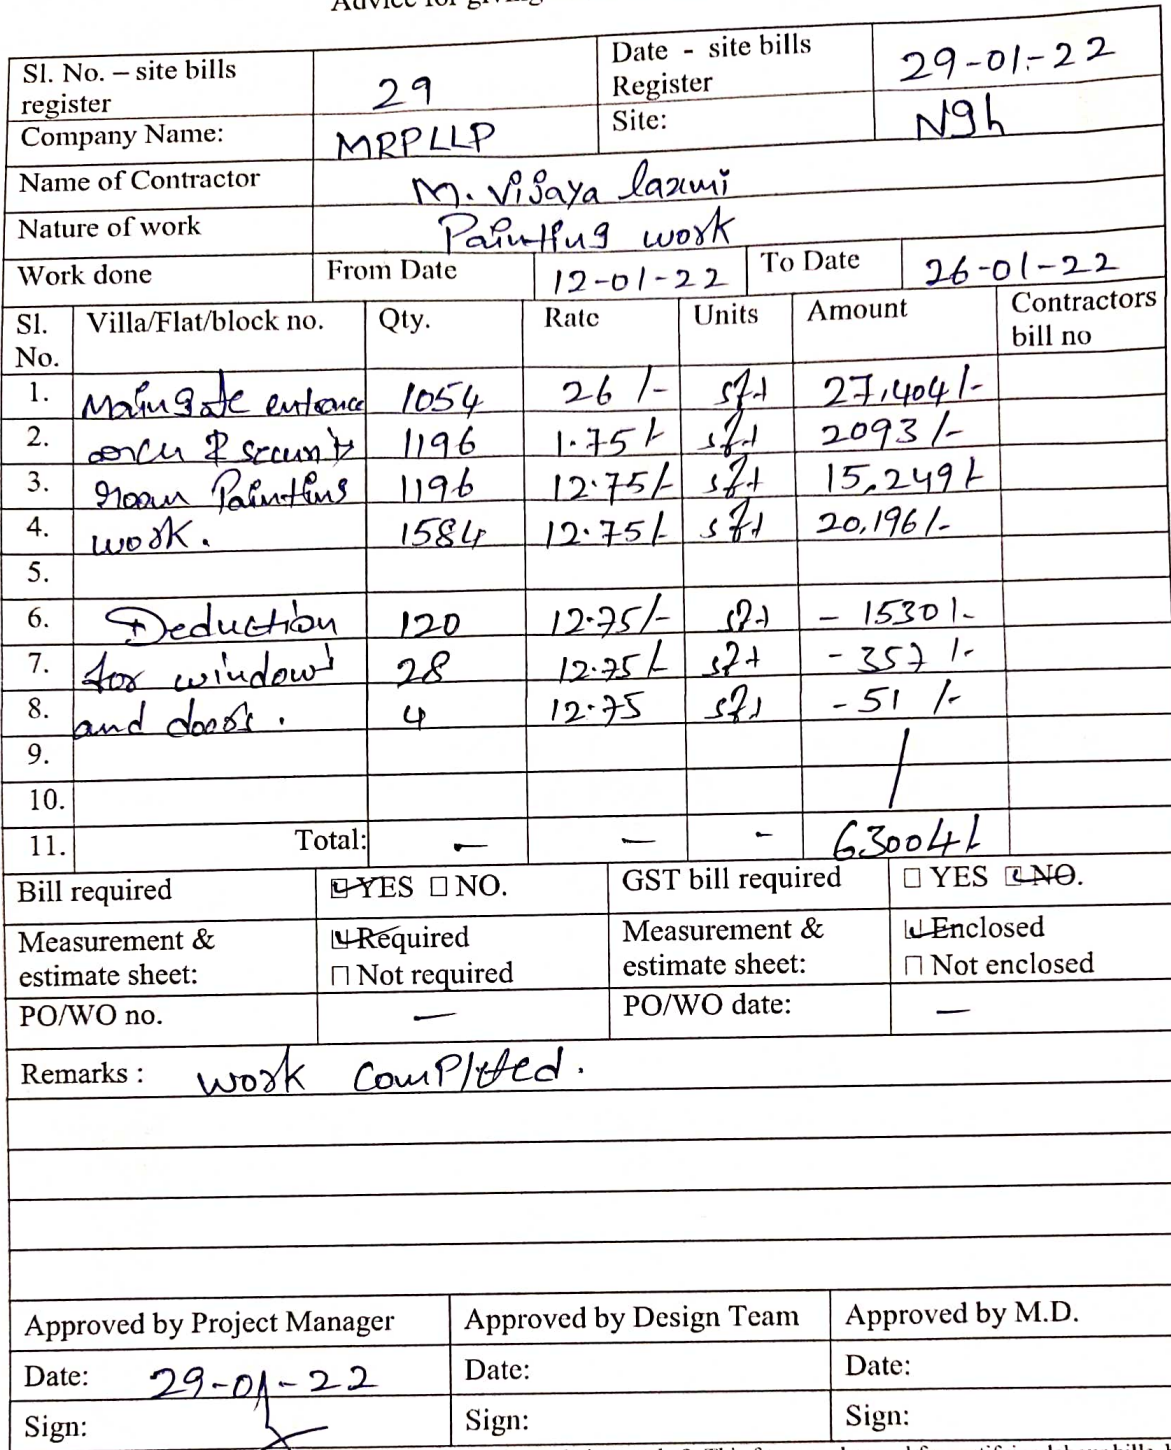 Sl. No. – site bills register 29 Date - site bills Register 29-01-22
Company Name: MRPLLP Site: Ngh
Name of Contractor M. Vijaya laxmi
Nature of work Painting work
Work done From Date 12-01-22 To Date 26-01-22
Sl. No. Villa/Flat/block no. Qty. Rate Units Amount Contractors bill no
1. Main gate entrance 1054 26/- sft 27,404/-
2. & 1196 1.75/- sft 2093/-
3. room Painting 1196 12.75/- sft 15,249/-
4. work. 1584 12.75/- sft 20,196/-
5.
6. Deduction 120 12.75/- sft - 1530/-
7. for window 28 12.75/- sft - 357/-
8. and doors. 4 12.75 sft - 51/-
9.
10.
11. Total: — — - 63004/-
Bill required ☑ YES ☐ NO. GST bill required ☐ YES ☑ NO.
Measurement & estimate sheet: ☑ Required ☐ Not required Measurement & estimate sheet: ☑ Enclosed ☐ Not enclosed
PO/WO no. — PO/WO date: —
Remarks : work completed.
Approved by Project Manager Approved by Design Team Approved by M.D.
Date: 29-01-22 Date: Date:
Sign: Sign: Sign: